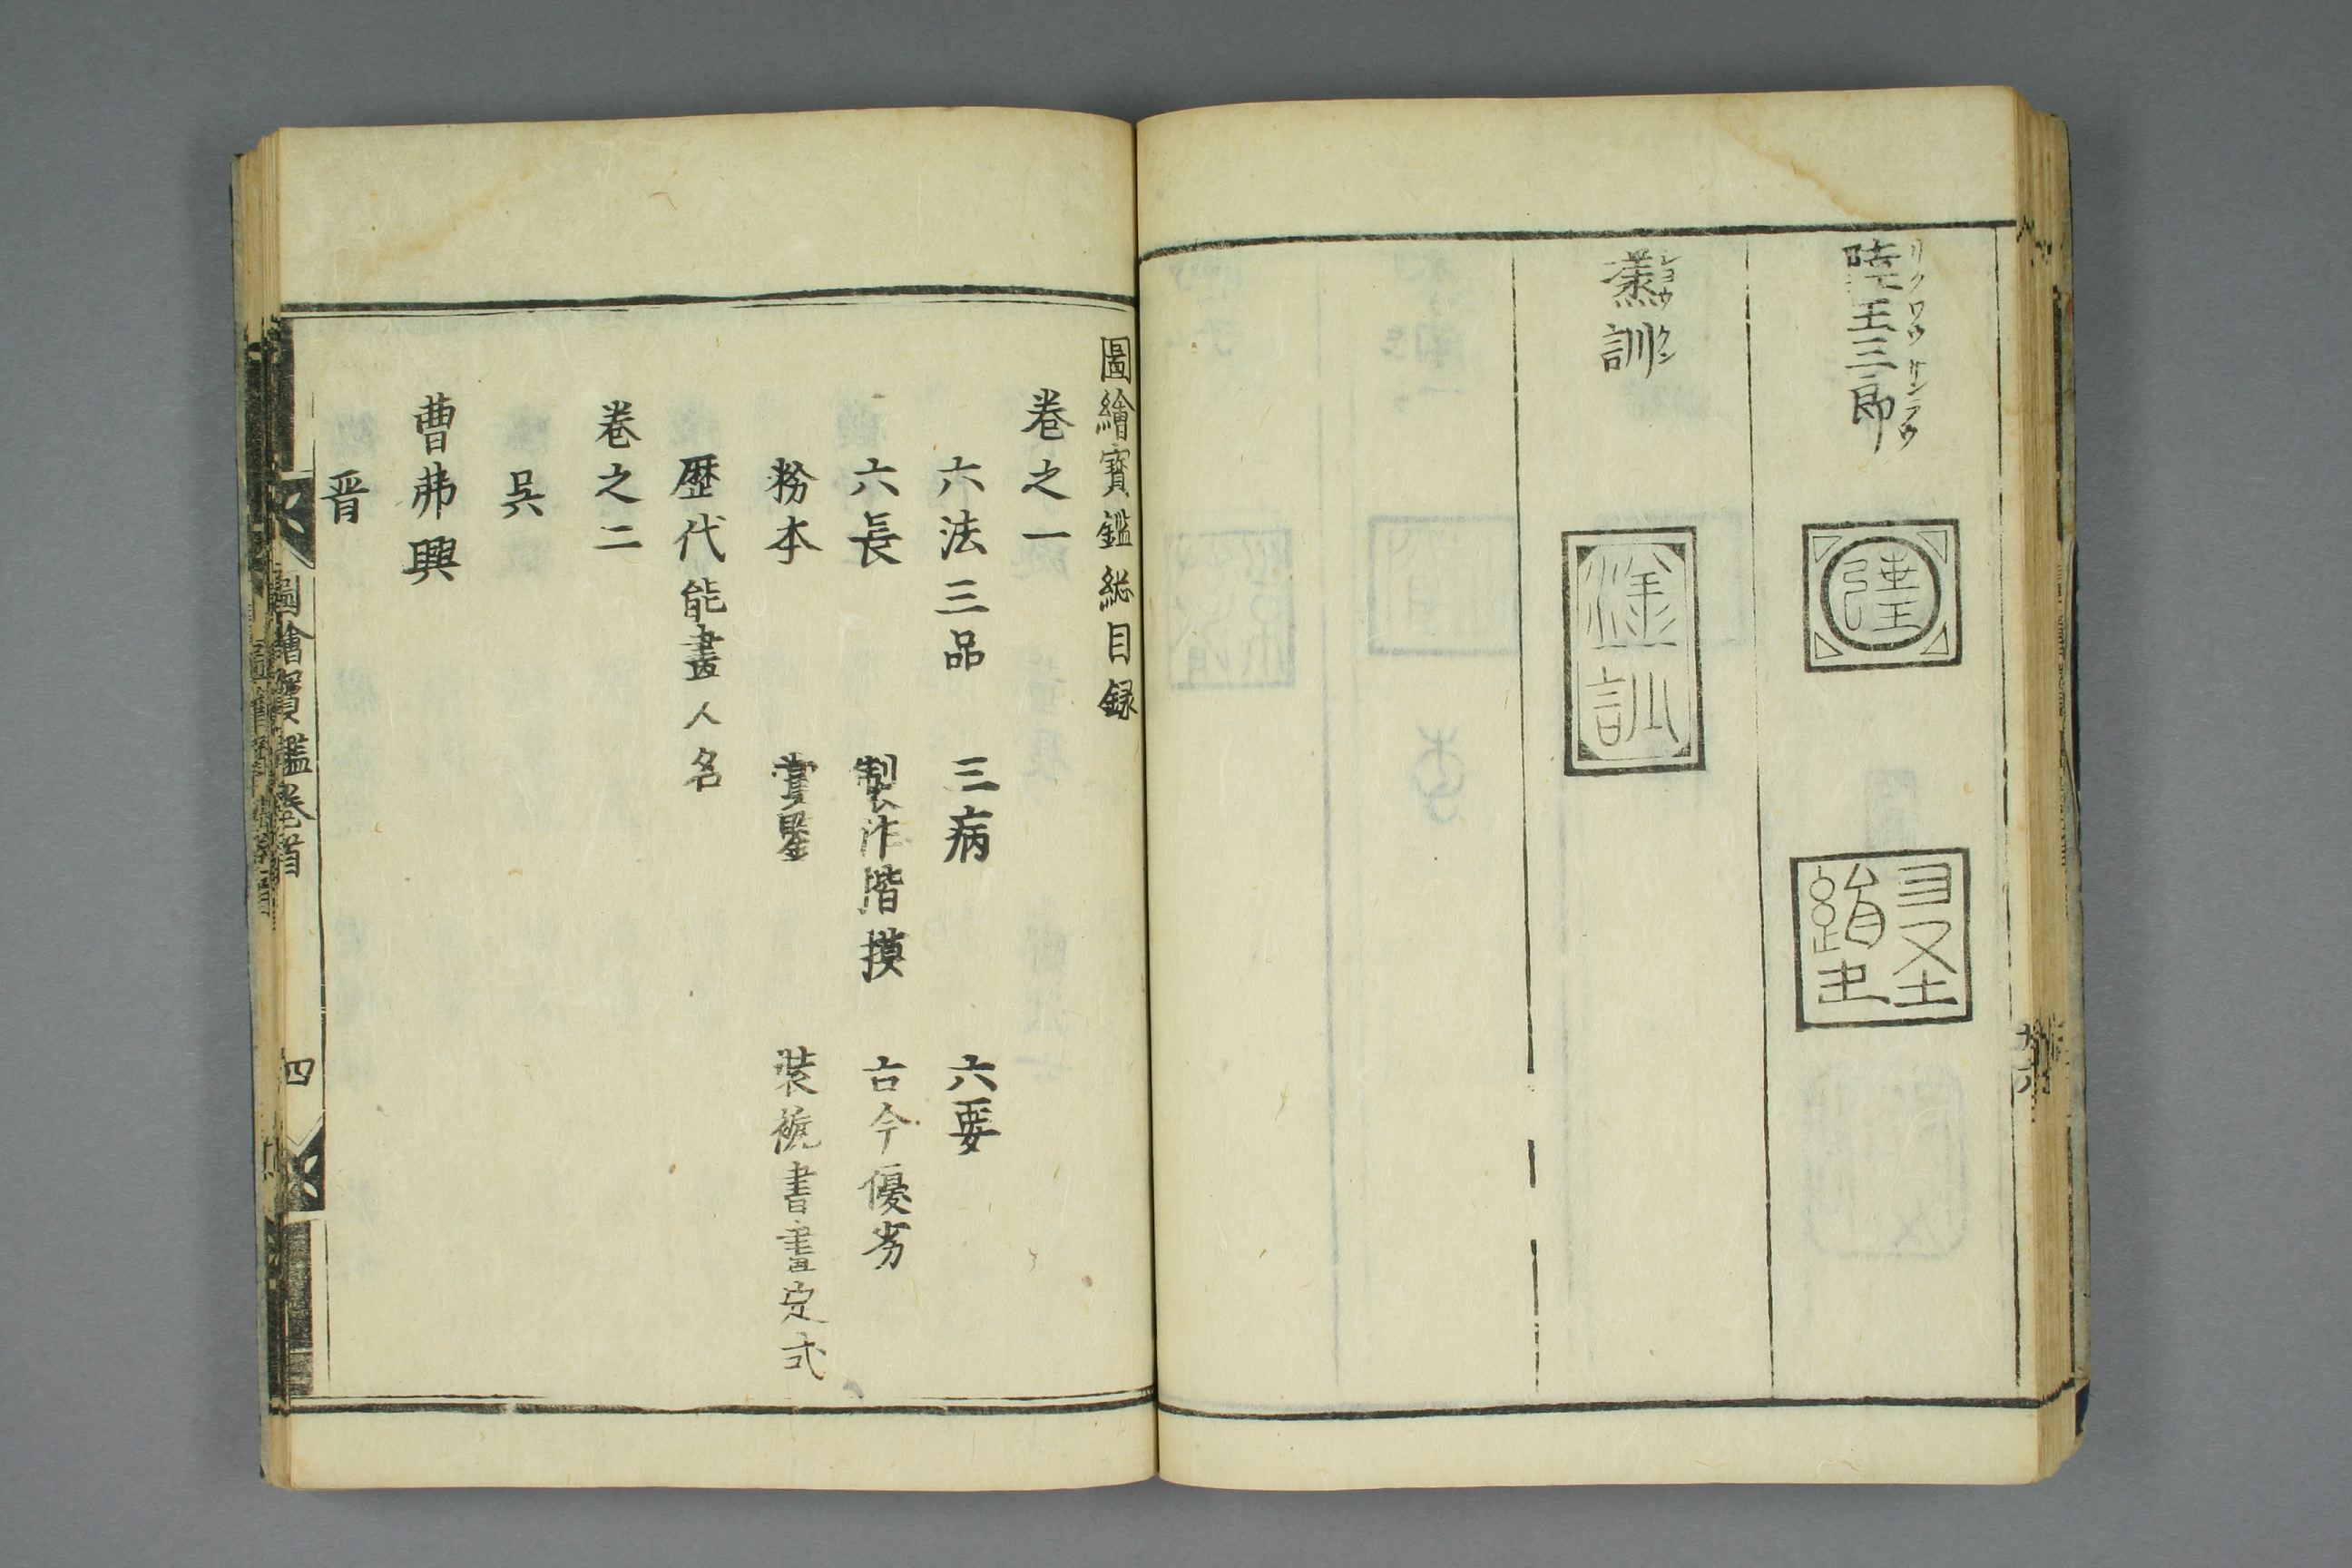 陸王三郎
リクワウサンラウ
訓
クン
訓
圖繪寳鑑総目録
巻之一
六法三品 三病 六要
六長 製作階摸 古今優劣
粉本 賞鑒 装褫書畫定式
歴代能畫人名
巻之二
吳
曹弗興
晋
圖繪寳鑑卷首 四